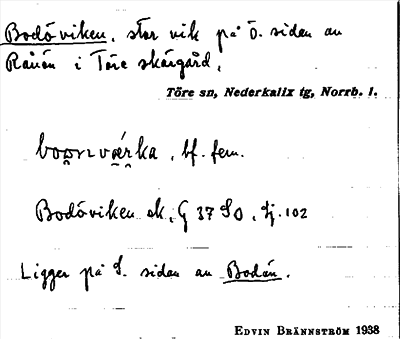 Bodöviken, stor vik på Ö. sidan av
Rånön i Töre skärgård.
Töre sn, Nederkalix tg, Norrb. l.
bf. fem.
Bodöviken ek. G 37 SO, Fj. 102
Ligger på S. sidan av Bodön.
EDVIN BRÄNNSTRÖM 1938